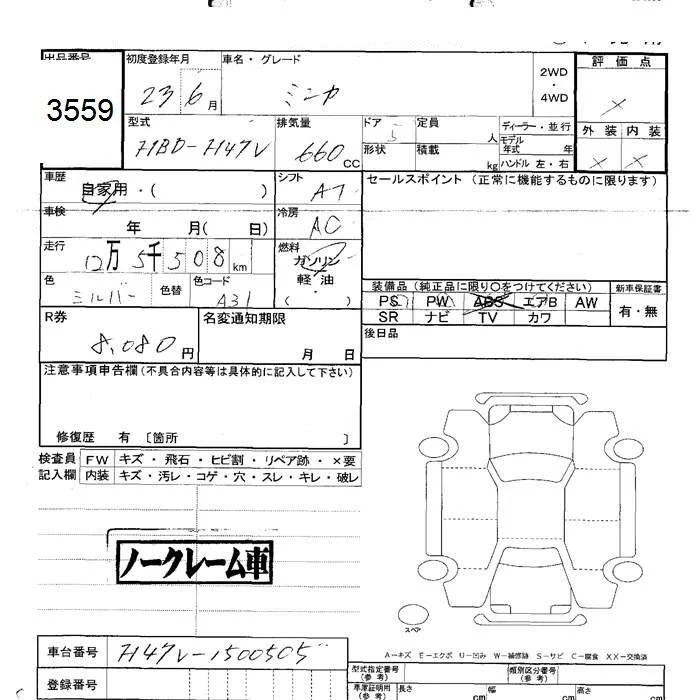 出品番号 初度登録年月 車名・グレード 評価点
3559 23 6月 ミニカ 2WD ・ 4WD ×
型式 排気量 ドア 5 定員 人 ディーラー・並行 外装 内装
HBD-H47V 660cc 形状 積載 kg モデル年式 年 ハンドル 左・右 × ×
車歴 自家用・( ) シフト AT セールスポイント (正常に機能するものに限ります)
車検 年 月( 日) 冷房 AC
走行 12万5千508km 燃料 ガソリン 軽油 ・( )
色 シルバー 色替 色コード A31 装備品(純正品に限り○をつけてください) 新車保証書
PS PW ABS エアB AW 有・無
SR ナビ TV カワ
R券 8,080円 名変通知期限 月 日 後日品
注意事項申告欄(不具合内容等は具体的に記入して下さい)
修復歴 有 〔箇所 〕
検査員 FW キズ・飛石・ヒビ割・リペア跡・×要
記入欄 内装 キズ・汚レ・コゲ・穴・スレ・キレ・破レ
ノークレーム車
スペア
A－キズ E－エクボ U－凹み W－補修跡 S－サビ C－腐食 XX－交換済
車台番号 H47V-1500505 型式指定番号(参考) 類別区分番号(参考)
登録番号 車庫証明用(参考) 長さ cm 幅 cm 高さ cm